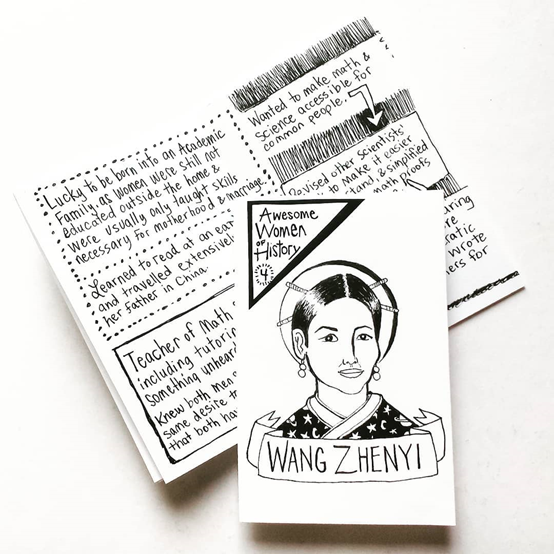 Lucky to be born into an Academic
Family, as Women were still not
educated outside the home &
were usually only taught skills
necessary for motherhood & marriage.
Learned to read at an
and travelled
her father in China.
Teacher of Math
including
something
Knew both
same desire
that both
Wanted to make math &
science accessible for
common people.
other scientists'
to make it easier
& simplified
math proofs
wrote
for
Awesome
Women
of
History
4
WANG ZHENYI